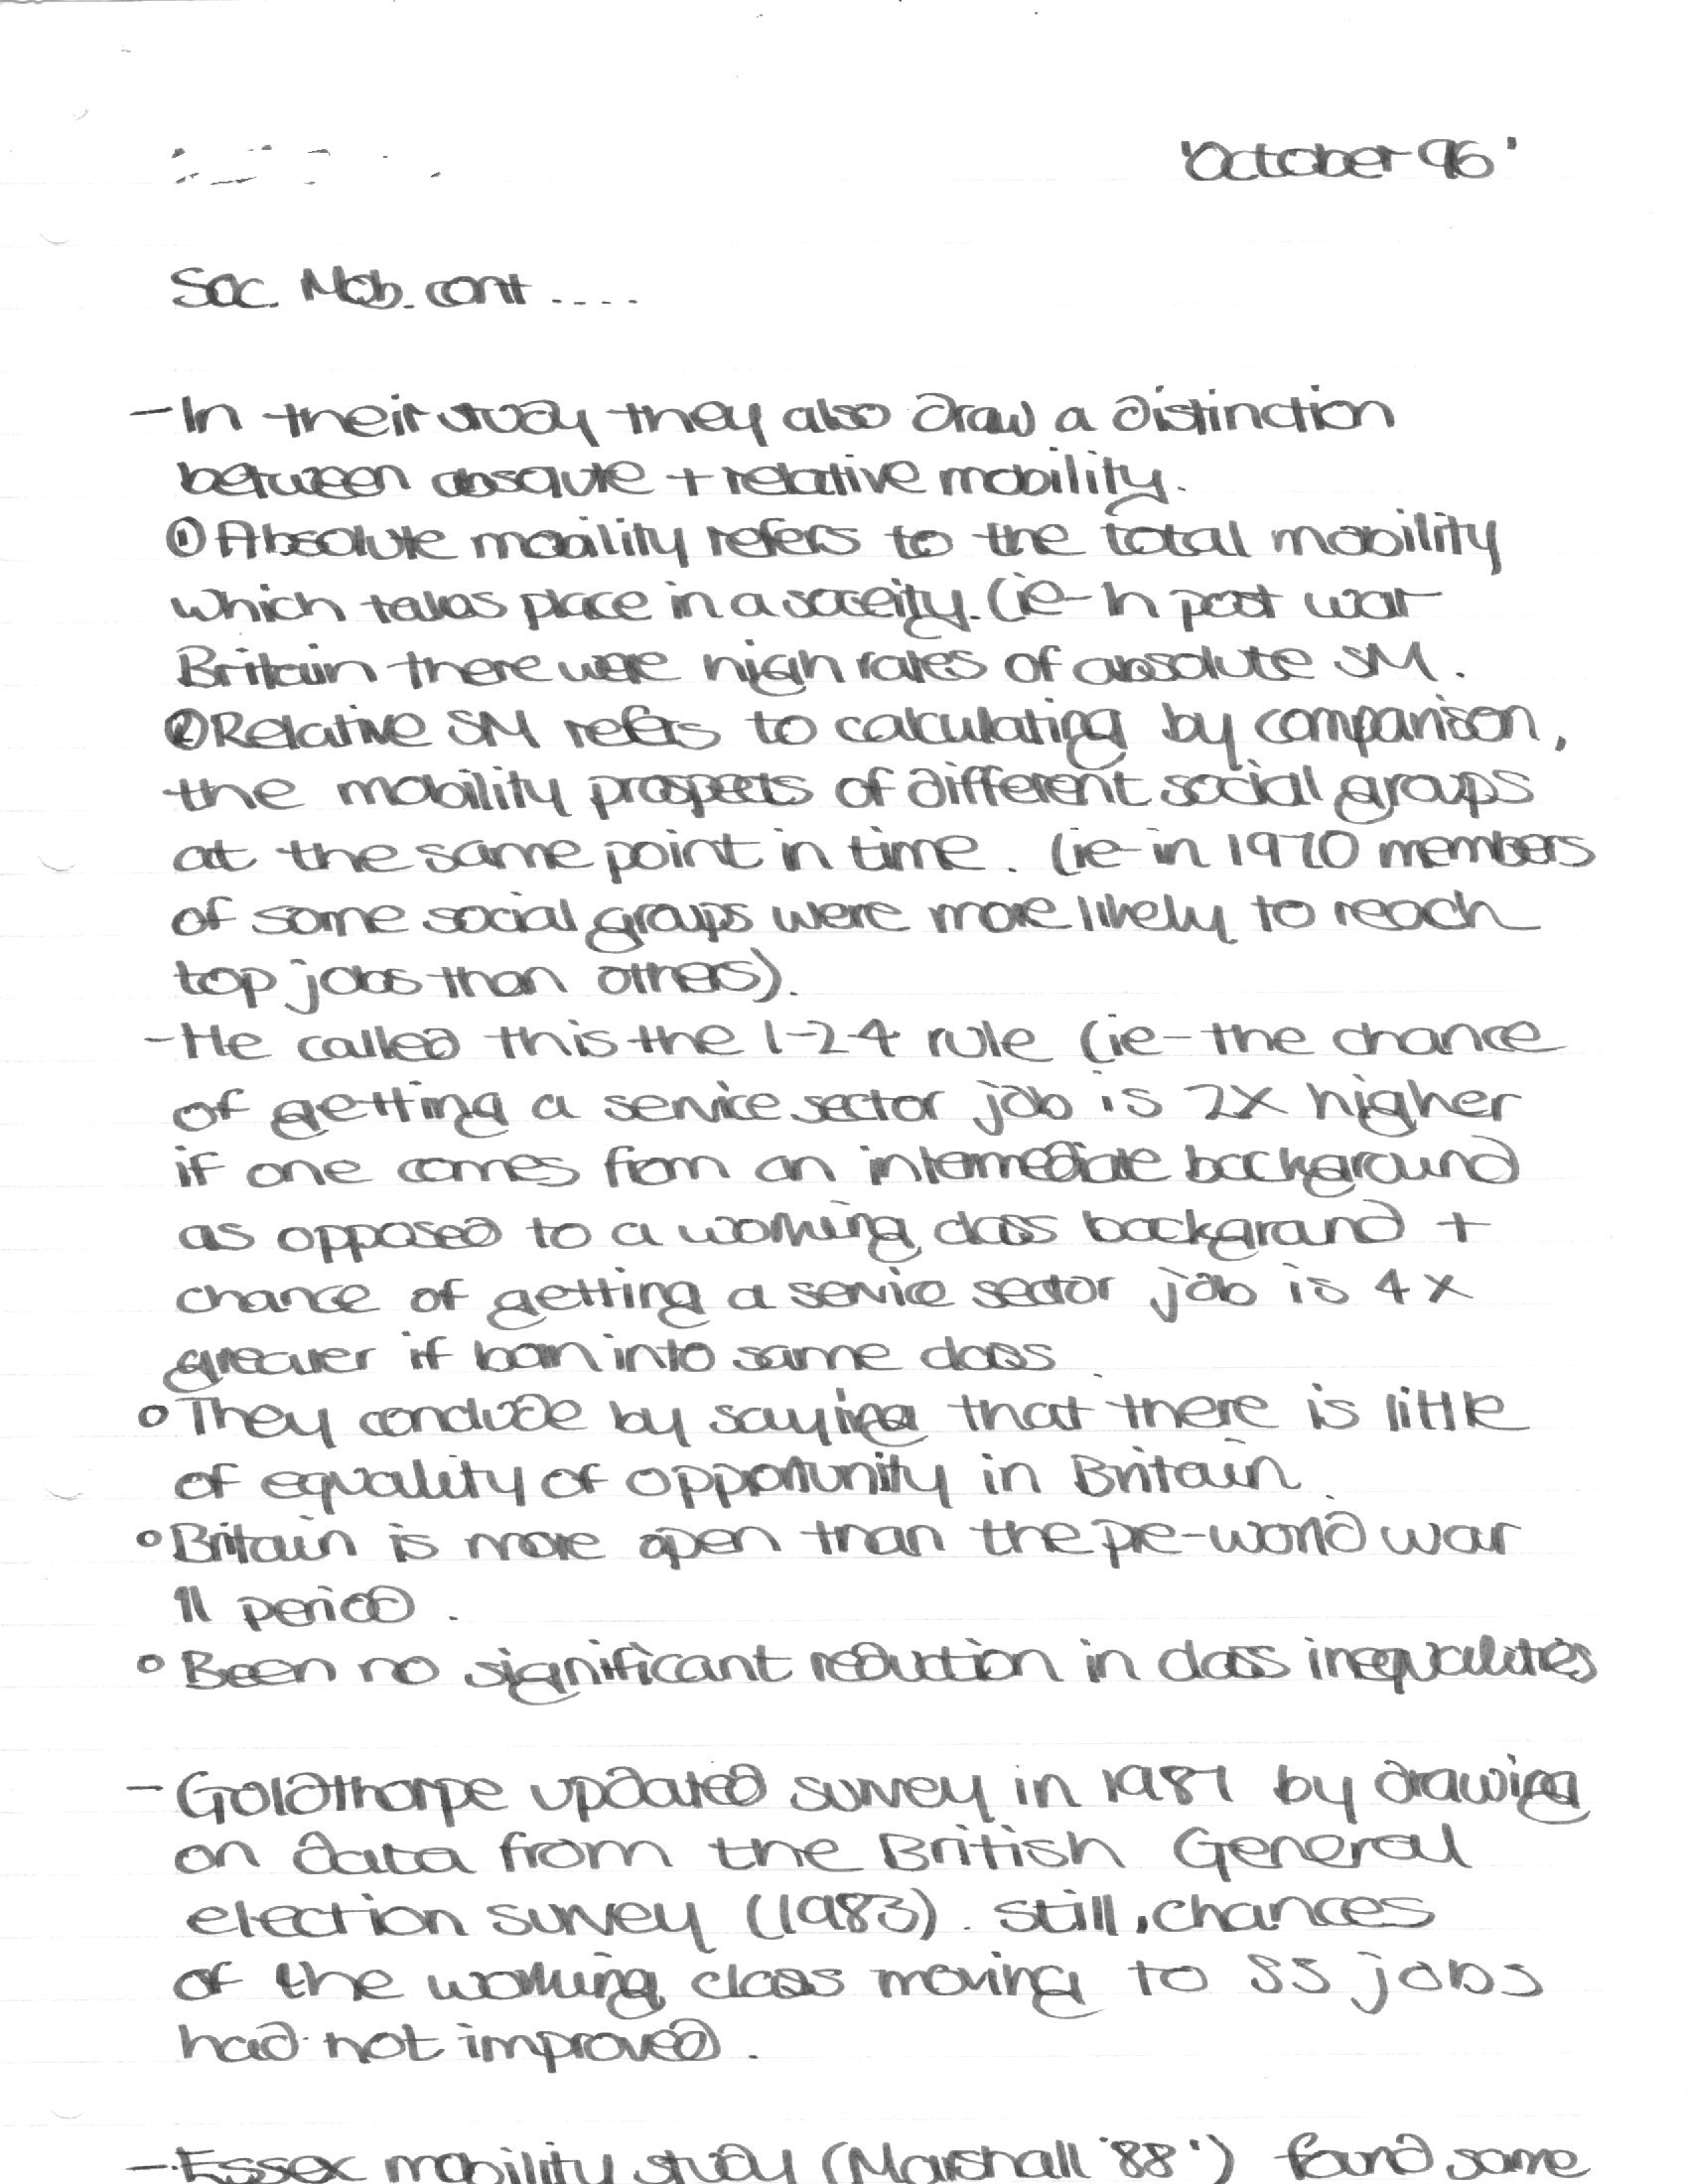 'October 96'
Soc. Mob. cont ....
- In their study they also draw a distinction
between absolute + relative mobility.
① Absolute mobility refers to the total mobility
which takes place in a soceity. (ie - In post war
Britain there were high rates of absolute SM.
② Relative SM refers to calculating by comparison,
the mobility prospects of different social groups
at the same point in time. (ie - in 1970 members
of some social groups were more likely to reach
top jobs than others).
- He called this the 1-2-4 rule (ie - the chance
of getting a service sector job is 2X higher
if one comes from an intermediate background
as opposed to a working class background +
chance of getting a service sector job is 4X
greater if born into same class
o They conclude by saying that there is little
of equality of opportunity in Britain
o Britain is more open than the pre-world war
II period.
o Been no significant reduction in class inequalities
- Goldthorpe updated survey in 1987 by drawing
on data from the British General
election survey (1983). still, chances
of the working class moving to SS jobs
had not improved.
- Essex mobility study (Marshall '88') found some